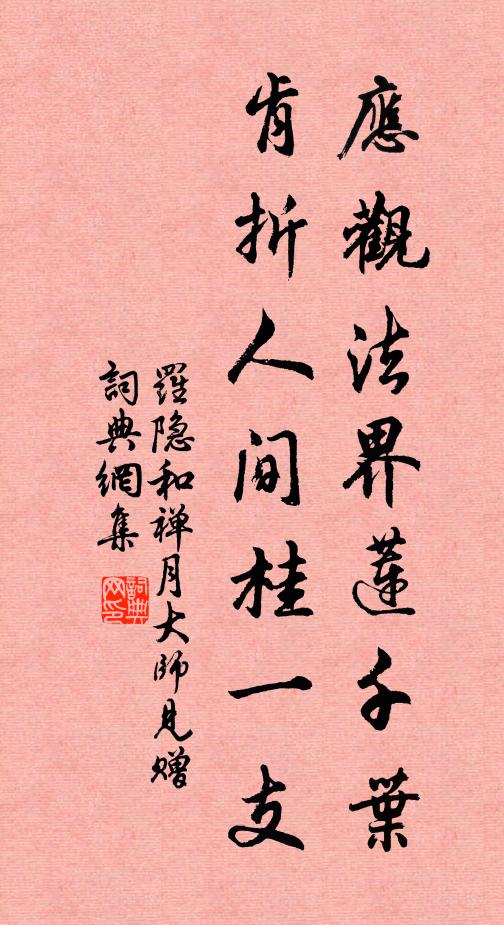 應觀法界蓮千葉
肯折人間桂一支
羅隐和禅月大師見贈
詞典網集
詞典網印